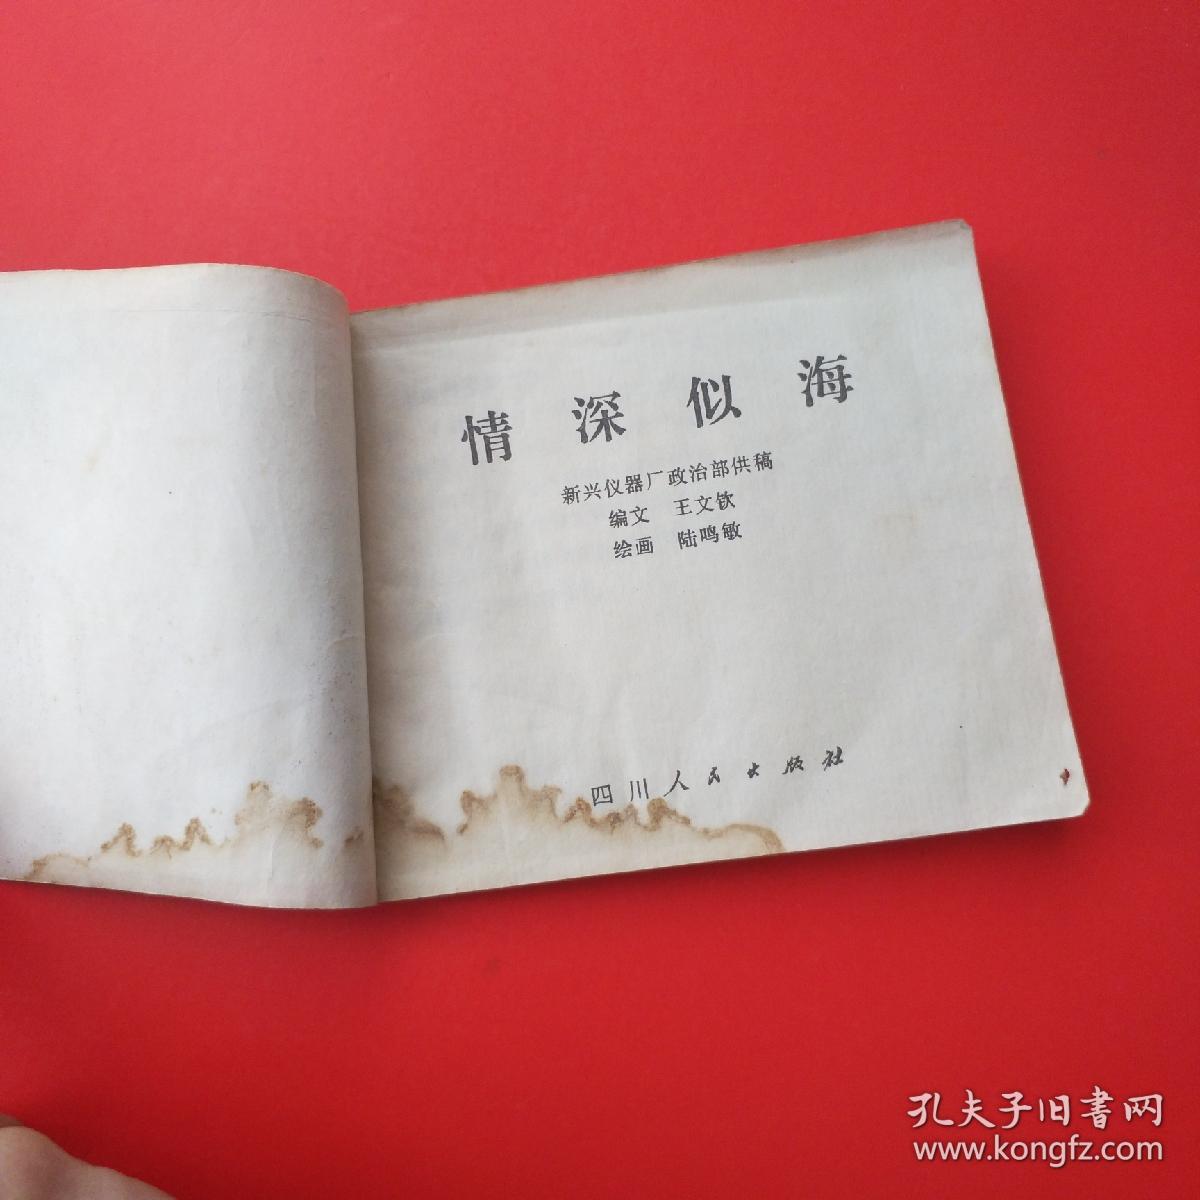 情深似海
新兴仪器厂政治部供稿
编文 王文钦
绘画 陆鸣敏
四川人民出版社
孔夫子旧书网
www.kongfz.com